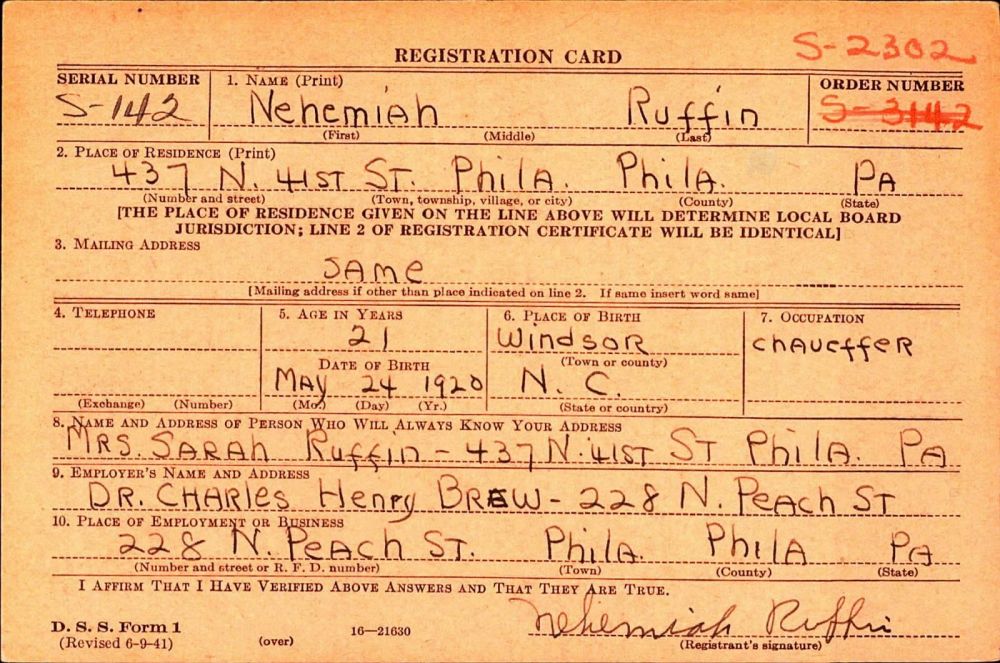 REGISTRATION CARD
S-2302
SERIAL NUMBER 1. NAME (Print) ORDER NUMBER
S-142 Nehemiah Ruffin S-3142
(First) (Middle) (Last)
2. PLACE OF RESIDENCE (Print)
437 N. 41ST ST. Phila. Phila. PA
(Number and street) (Town, township, village, or city) (County) (State)
[THE PLACE OF RESIDENCE GIVEN ON THE LINE ABOVE WILL DETERMINE LOCAL BOARD
JURISDICTION; LINE 2 OF REGISTRATION CERTIFICATE WILL BE IDENTICAL]
3. MAILING ADDRESS
SAME
[Mailing address if other than place indicated on line 2. If same insert word same]
4. TELEPHONE 5. AGE IN YEARS 6. PLACE OF BIRTH 7. OCCUPATION
21 Windsor chaueffer
DATE OF BIRTH (Town or county)
MAY 24 1920 N. C.
(Exchange) (Number) (Mo.) (Day) (Yr.) (State or country)
8. NAME AND ADDRESS OF PERSON WHO WILL ALWAYS KNOW YOUR ADDRESS
MRS. SARAh Ruffin - 437 N. 41ST ST Phila. PA
9. EMPLOYER'S NAME AND ADDRESS
DR. CHARles Henry BREW - 228 N. Peach ST
10. PLACE OF EMPLOYMENT OR BUSINESS
228 N. Peach ST. Phila. Phila PA
(Number and street or R. F. D. number) (Town) (County) (State)
I AFFIRM THAT I HAVE VERIFIED ABOVE ANSWERS AND THAT THEY ARE TRUE.
Nehemiah Ruffin
D. S. S. Form 1
(Revised 6-9-41) (over) 16—21630 (Registrant's signature)